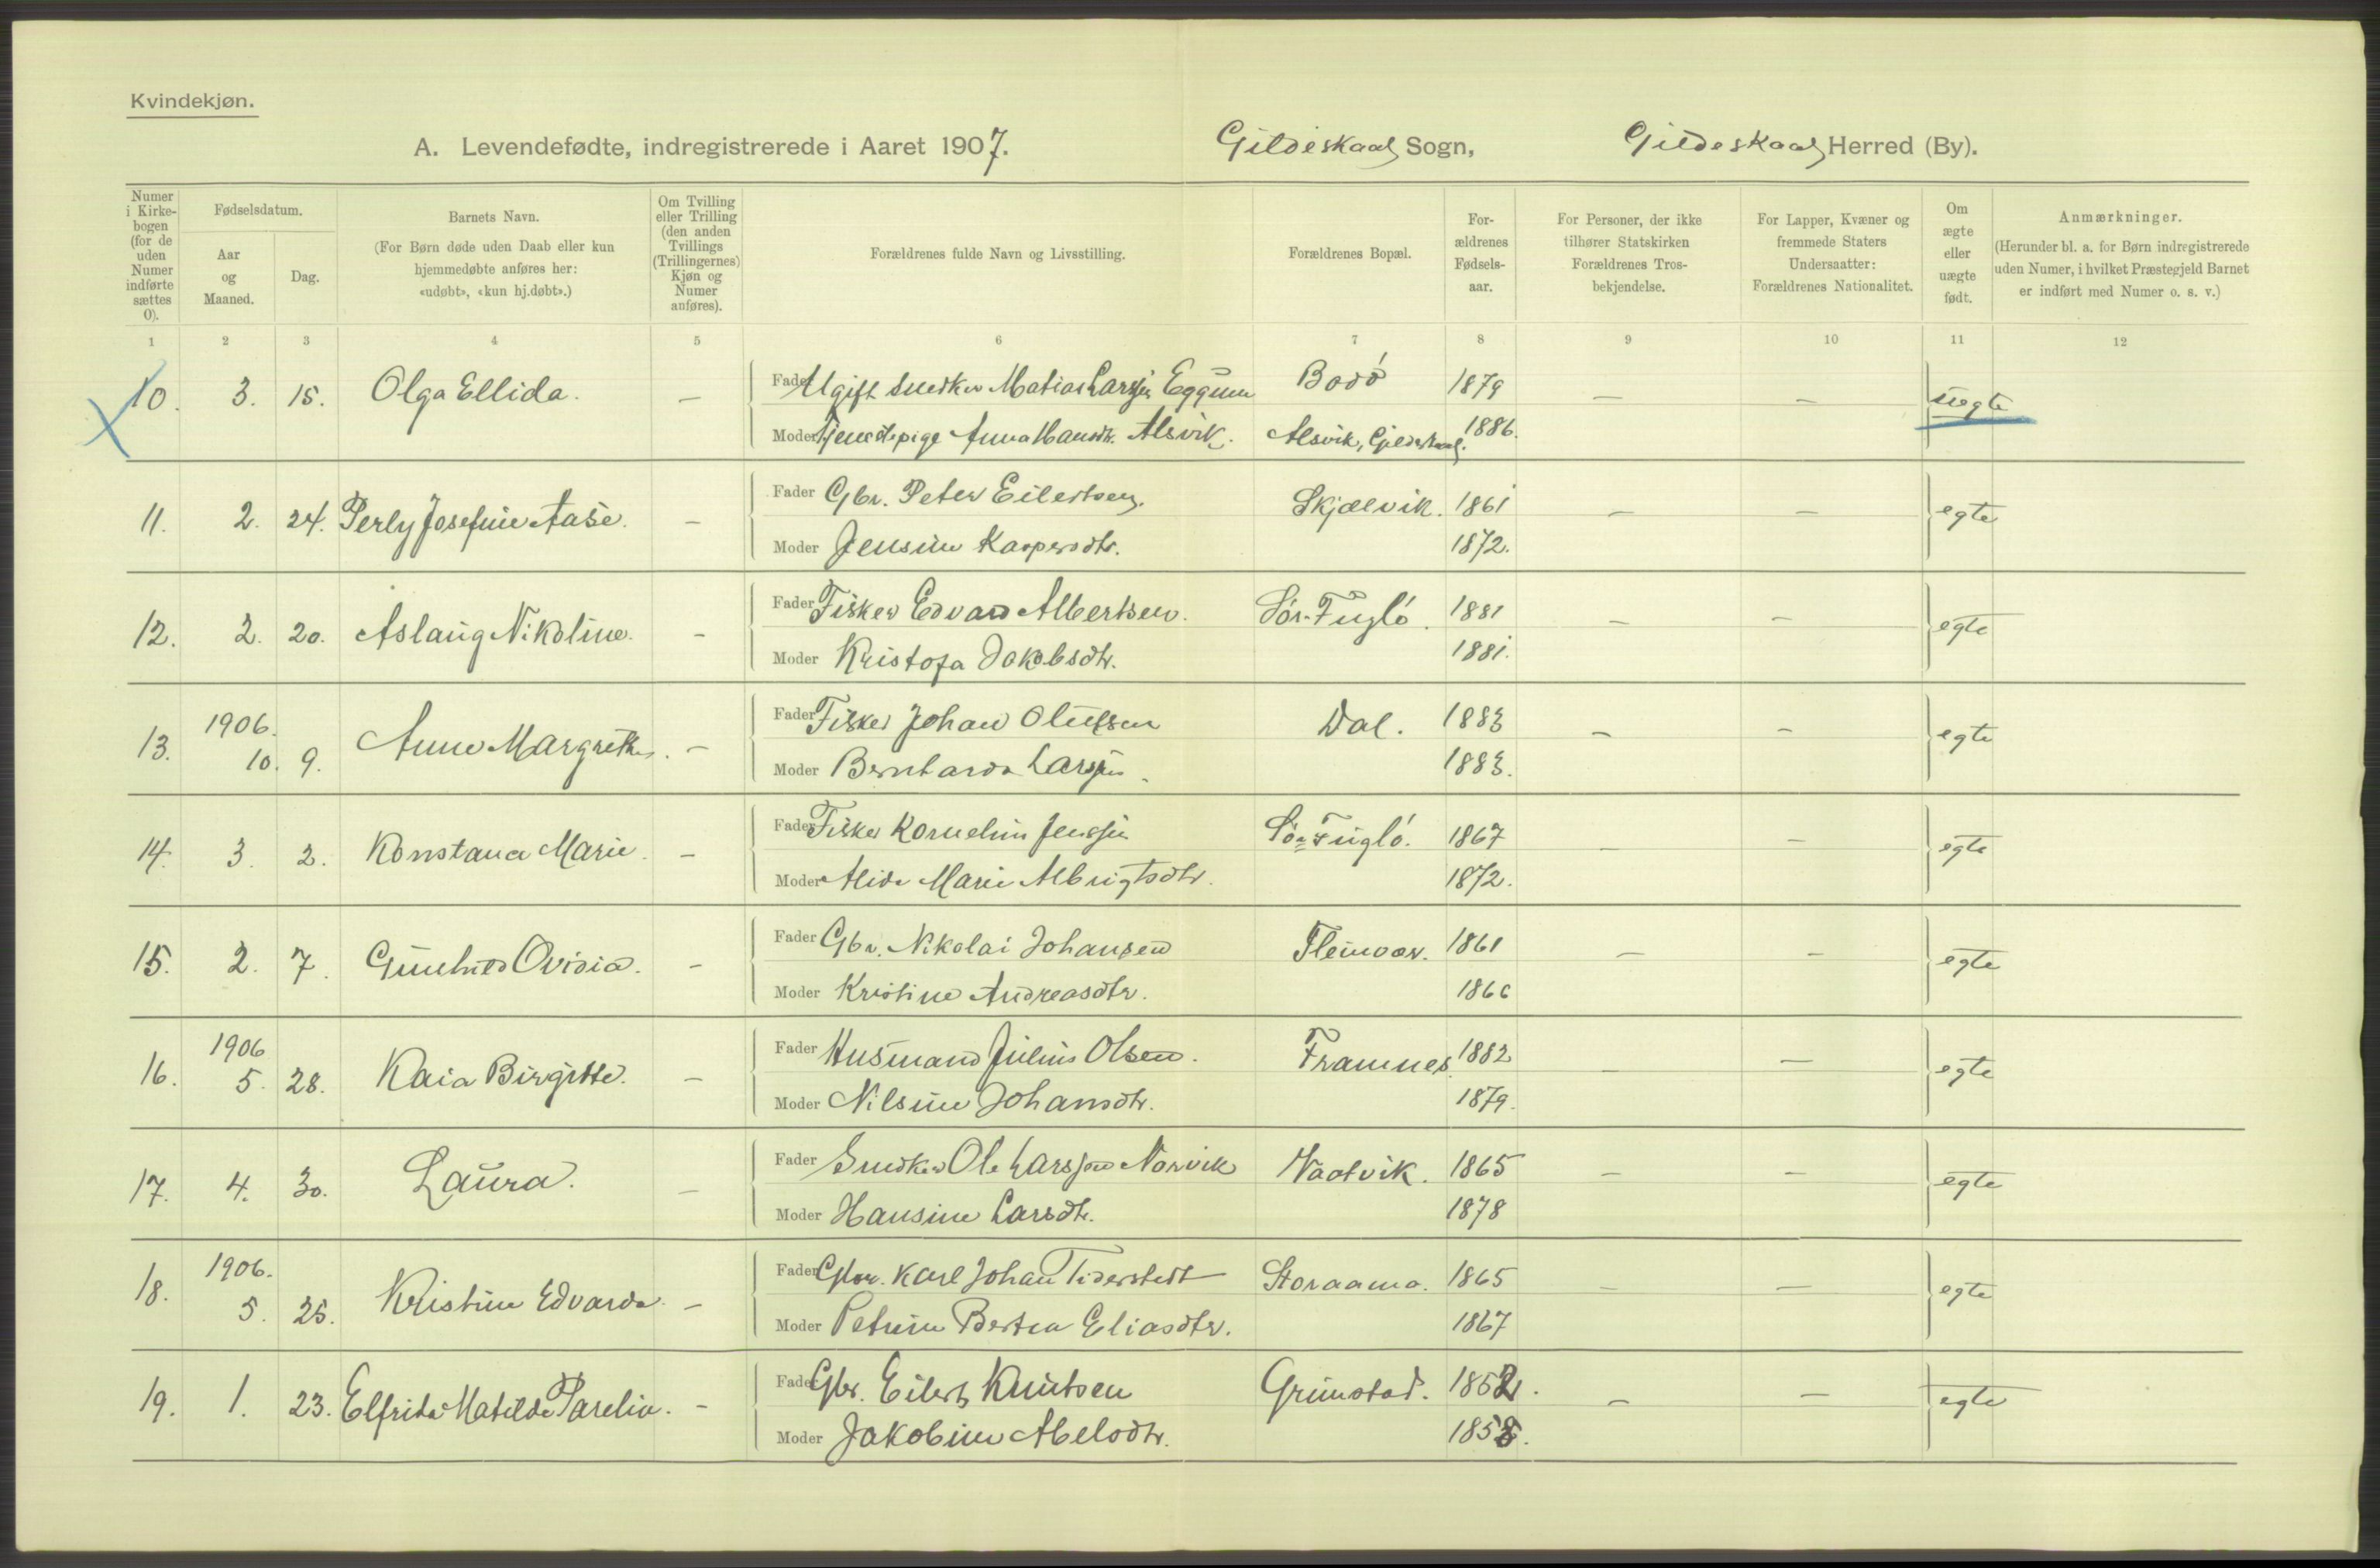 Kvindekjøn.
A. Levendefødte, indregistrerede i Aaret 1907. Gildeskaal Sogn, Gildeskaal Herred (By).
Numer i Kirkebogen (for de uden Numer indførte sættes 0).
Fødselsdatum.
Aar og Maaned.
Dag.
Barnets Navn.
(For Børn døde uden Daab eller kun hjemmedøbte anføres her: «udøbt», «kun hj.døbt».)
Om Tvilling eller Trilling (den anden Tvillings (Trillingernes) Kjøn og Numer anføres).
Forældrenes fulde Navn og Livsstilling.
Forældrenes Bopæl.
Forældrenes Fødselsaar.
For Personer, der ikke tilhører Statskirken Forældrenes Trosbekjendelse.
For Lapper, Kvæner og fremmede Staters Undersaatter: Forældrenes Nationalitet.
Om ægte eller uægte født.
Anmærkninger.
(Herunder bl. a. for Børn indregistrerede uden Numer, i hvilket Præstegjeld Barnet er indført med Numer o. s. v.)
1 2 3 4 5 6 7 8 9 10 11 12
10. 3. 15. Olga Ellida. — Fader Ugift Snedker Matias Larsen Eggum Bodó 1879 — — uegte
Moder Tjenestepige Anna Hansdtr. Alsvik. Alsvik, Gildeskaal. 1886.
11. 2. 24. Perly Josefine Aase. — Fader Gbr. Peter Eilertsen. Skjælvik. 1861 — — egte
Moder Jensine Kaspersdtr. 1872.
12. 2. 20. Aslaug Nikoline. — Fader Fisker Edvard Albertsen. Sór-Fugló. 1881 — — egte
Moder Kristofa Jakobsdtr. 1881.
13. 1906. 10. 9. Anne Margrethe. — Fader Fisker Johan Olufsen Dal. 1883 — — egte
Moder Bernharda Larsen. 1883.
14. 3. 2. Konstana Marie. — Fader Fisker Kornelius Jensen Sór-Fugló. 1867 — — egte
Moder Alida Marie Albrigtsdtr. 1872.
15. 2. 7. Gunhild Ovidia. — Fader Gbr. Nikolai Johansen Fleinvær. 1861 — — egte
Moder Kristine Andreasdtr. 1866
16. 1906 5. 28. Kaia Birgitte. — Fader Husmand Julius Olsen. Framnes. 1882 — — egte
Moder Nilsine Johansdtr. 1879.
17. 4. 30. Laura. — Fader Snedker Ole Larssen Norvik Naatvik. 1865 — — egte
Moder Hansine Larsdtr. 1878
18. 1906. 5. 25. Kristine Edvarda. — Fader Gbr. Karl Johan Tiderstedt Storaama. 1865 — — egte
Moder Petrine Bertea Eliasdtr. 1867
19. 1. 23. Elfrida Matilde Parelia. — Fader Gbr. Eilert Knutsen Grimstad. 1852. — — egte
Moder Jakobine Abelsdtr. 1858.